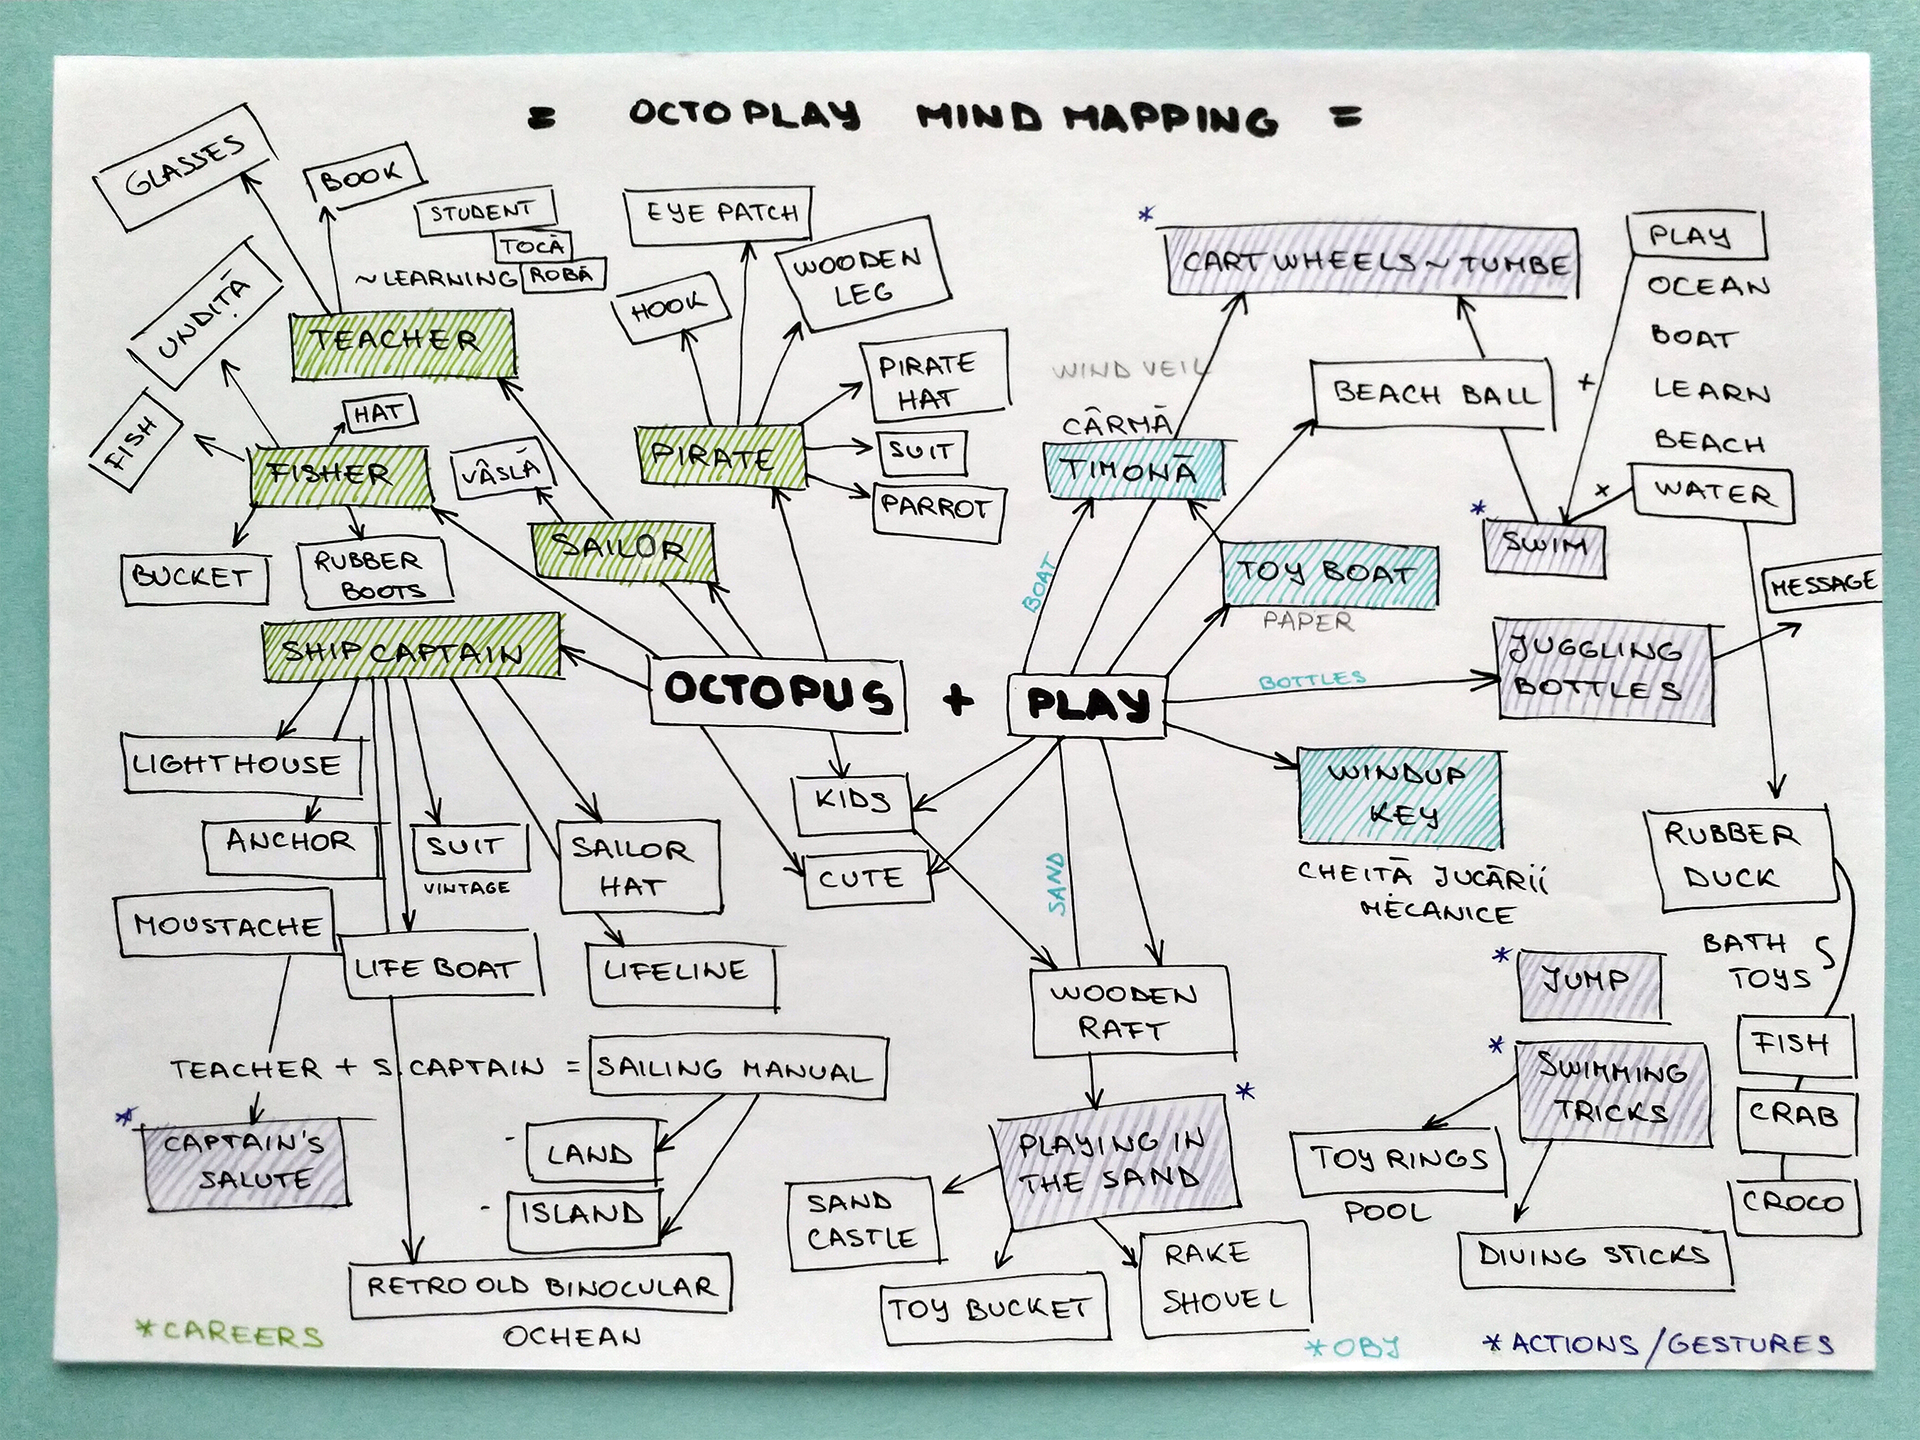 = OCTOPLAY MIND MAPPING =
GLASSES
BOOK
STUDENT
TOCĂ
~LEARNING
ROBĂ
UNDIȚĂ
TEACHER
FISH
HAT
FISHER
VÂSLĂ
BUCKET
RUBBER
BOOTS
SAILOR
SHIP CAPTAIN
EYE PATCH
HOOK
WOODEN
LEG
PIRATE
HAT
PIRATE
SUIT
PARROT
CARTWHEELS ~ TUMBE
WIND VEIL
CÂRMĂ
TIMONĂ
BEACH BALL
+
PLAY
OCEAN
BOAT
LEARN
BEACH
WATER
x
SWIM
BOAT
TOY BOAT
PAPER
MESSAGE
JUGGLING
BOTTLES
BOTTLES
OCTOPUS + PLAY
WINDUP
KEY
CHEIȚĂ JUCĂRII
MECANICE
KIDS
CUTE
SAND
LIGHTHOUSE
ANCHOR
SUIT
VINTAGE
SAILOR
HAT
MOUSTACHE
LIFE BOAT
LIFELINE
WOODEN
RAFT
RUBBER
DUCK
BATH
TOYS
JUMP
FISH
CRAB
CROCO
SWIMMING
TRICKS
TOY RINGS
POOL
DIVING STICKS
TEACHER + S.CAPTAIN = SAILING MANUAL
CAPTAIN'S
SALUTE
- LAND
- ISLAND
RETRO OLD BINOCULAR
OCHEAN
PLAYING IN
THE SAND
SAND
CASTLE
TOY BUCKET
RAKE
SHOVEL
*CAREERS
*OBJ
*ACTIONS/GESTURES